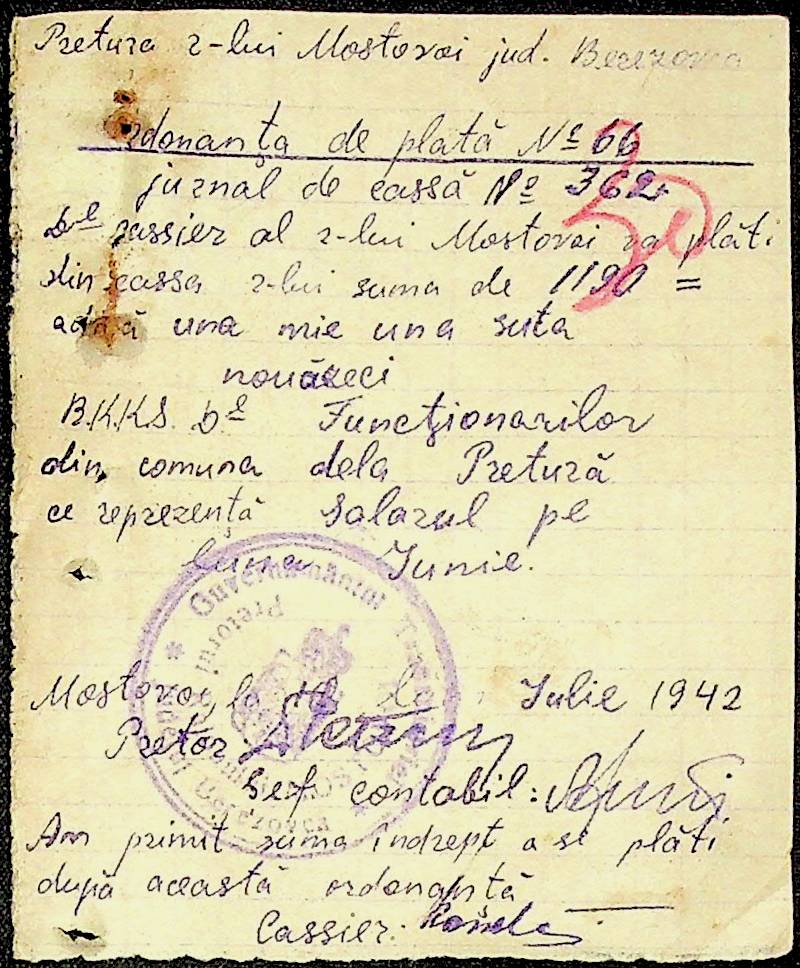 Pretura r-lui Mostovoi jud. Berezovca
Ordonanţa de plată № 66
jurnal de cassă № 362
30
Dl cassier al r-lui Mostovoi va plăti
din cassa r-lui suma de 1190 =
adică una mie una suta
nouăzeci
R.K.K.S. Dl Funcţionarilor
din comuna dela Pretură
ce reprezentă Salarul pe
luna Iunie.
* Guvernământul
Pretorul
Mostovoi, la Iulie 1942
Pretor:
Șef contabil:
Am primit suma îndrept a se plăti
după această ordonanţă
Cassier: